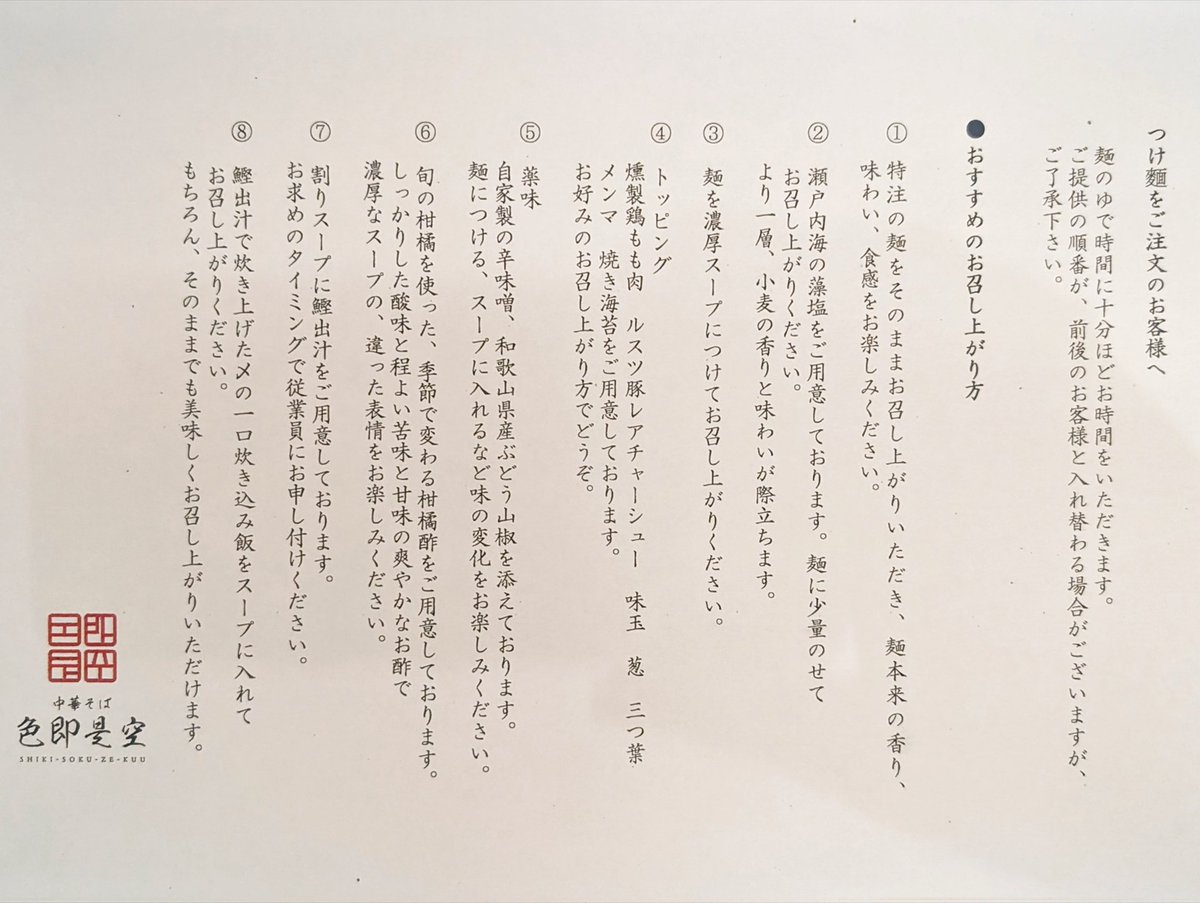 つけ麵をご注文のお客様へ
麺のゆで時間に十分ほどお時間をいただきます。
ご提供の順番が、前後のお客様と入れ替わる場合がございますが、
ご了承下さい。
●おすすめのお召し上がり方
① 特注の麺をそのままお召し上がりいただき、麺本来の香り、
味わい、食感をお楽しみください。
② 瀬戸内海の藻塩をご用意しております。麺に少量のせて
お召し上がりください。
より一層、小麦の香りと味わいが際立ちます。
③ 麺を濃厚スープにつけてお召し上がりください。
④ トッピング
燻製鶏もも肉 ルスツ豚レアチャーシュー 味玉 葱 三つ葉
メンマ 焼き海苔をご用意しております。
お好みのお召し上がり方でどうぞ。
⑤ 薬味
自家製の辛味噌、和歌山県産ぶどう山椒を添えております。
麺につける、スープに入れるなど味の変化をお楽しみください。
⑥ 旬の柑橘を使った、季節で変わる柑橘酢をご用意しております。
しっかりした酸味と程よい苦味と甘味の爽やかなお酢で
濃厚なスープの、違った表情をお楽しみください。
⑦ 割りスープに鰹出汁をご用意しております。
お求めのタイミングで従業員にお申し付けください。
⑧ 鰹出汁で炊き上げた〆の一口炊き込み飯をスープに入れて
お召し上がりください。
もちろん、そのままでも美味しくお召し上がりいただけます。
色即是空
中華そば
色即是空
SHIKI-SOKU-ZE-KUU